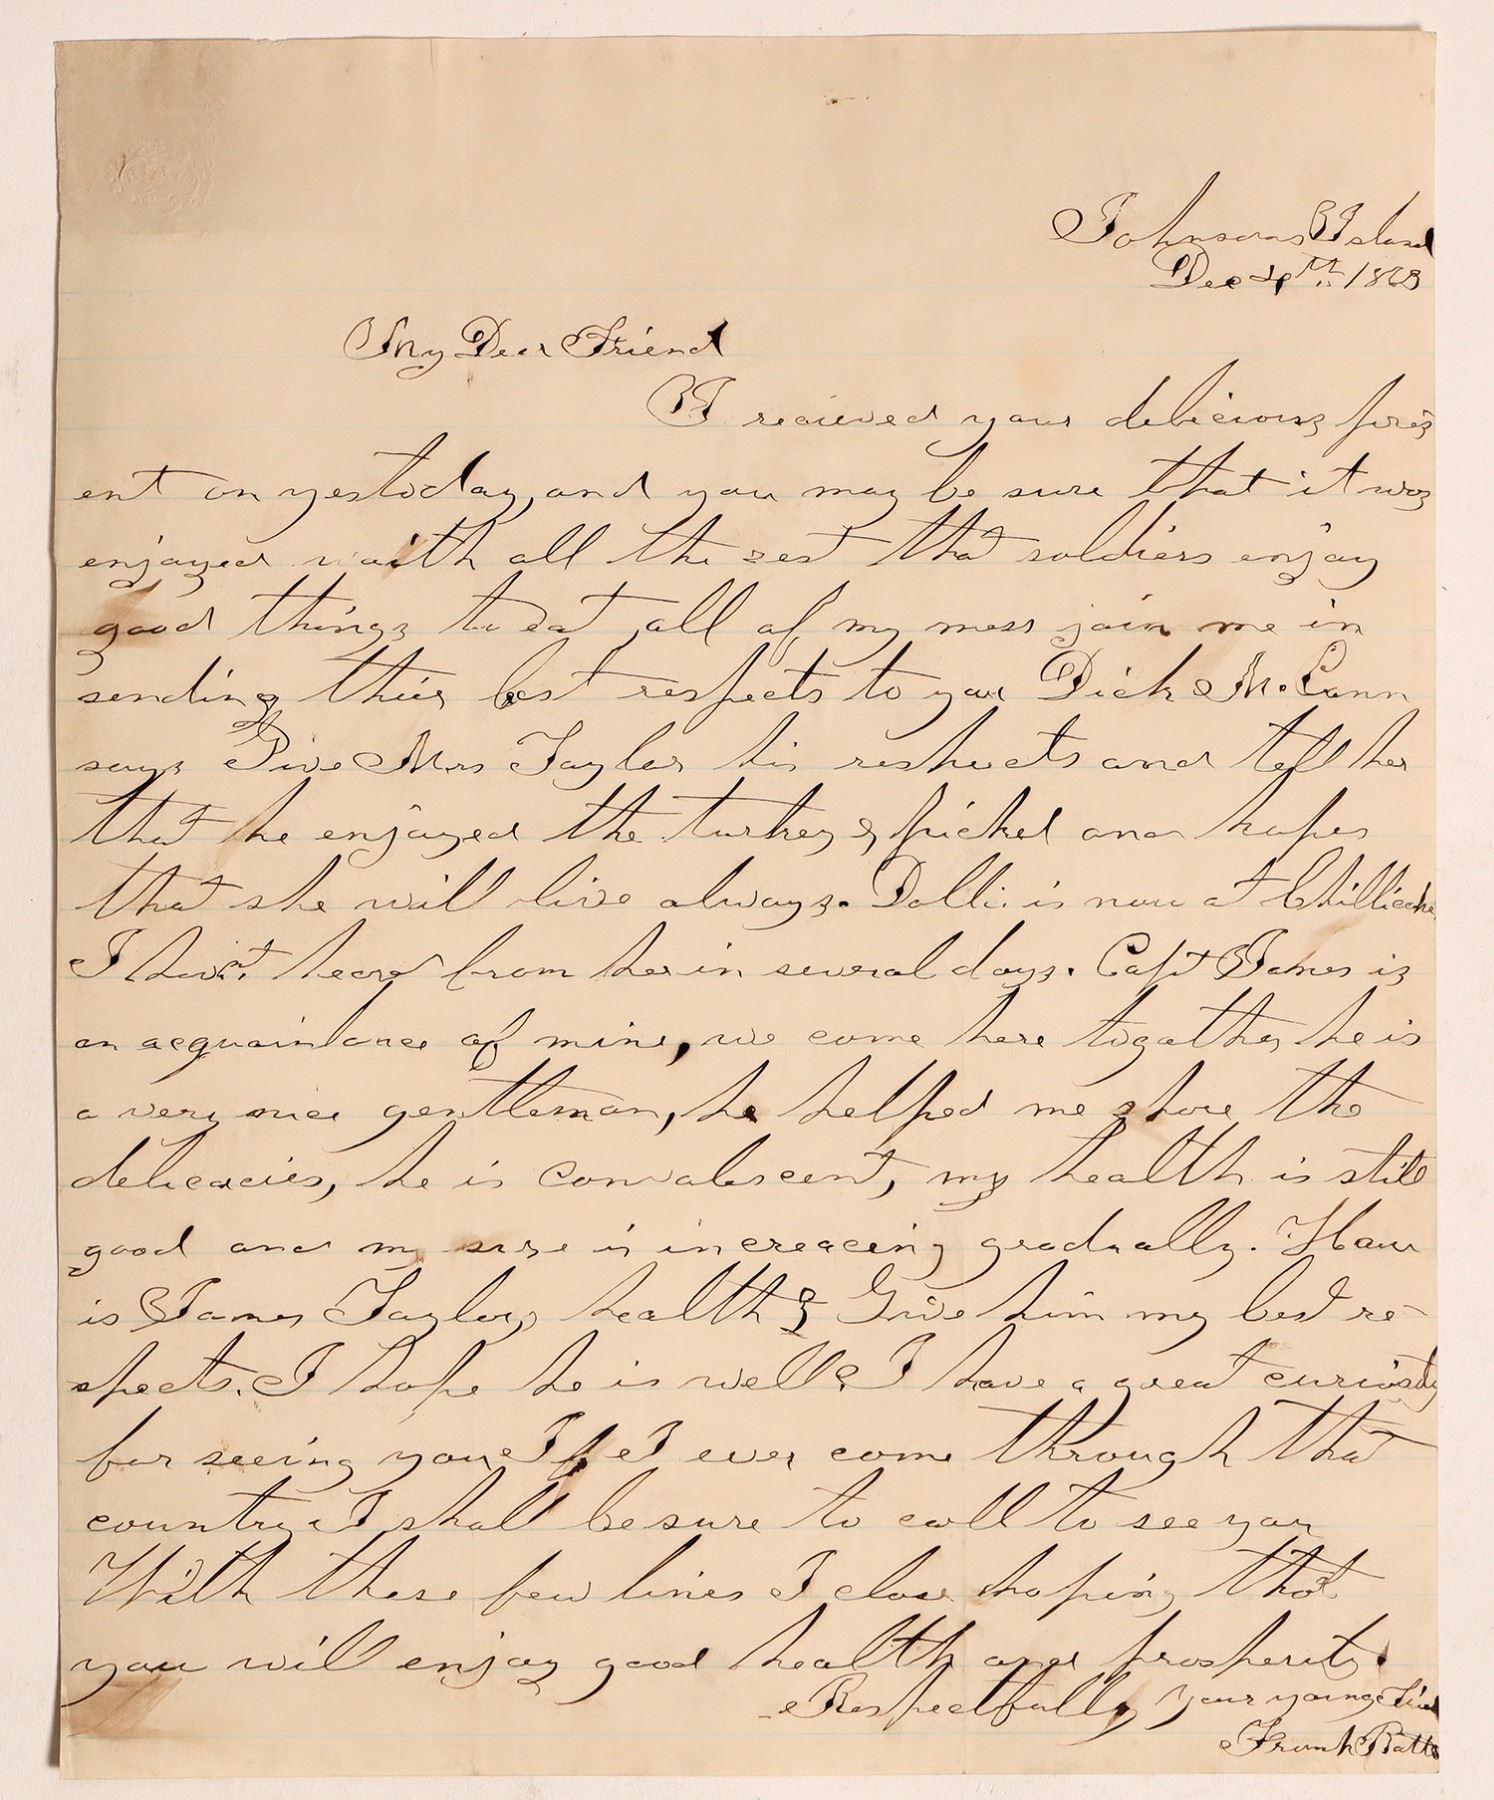 Johnsons Island
Dec 4th 1863
My Dear Friend
I recieved your delicious pres
ent on yestoday, and you may be sure that it was
enjoyed with all the zest that soldiers enjoy
good things to eat, all of my mess join me in
sending thier best respects to you Dick McCann
says Give Mrs Taylor his respects and tell her
that he enjoyed the turkey & pickel and hopes
that she will live always. Dollie is now at Chillicothe
I havn't heard from her in several days. Capt James is
an acquaintance of mine, we come here together he is
a very nice gentleman, he helped me share the
delicacies, he is convalescent, my health is still
good and my size is increacing gradually. How
is James Taylors health? Give him my best re-
spects. I hope he is well. I have a great curiosity
for seeing you If I ever come through that
country I shall be sure to call to see you
With these few lines I close hoping that
you will enjoy good health and prosperity.
Respectfully Your young Friend
Frank Batts